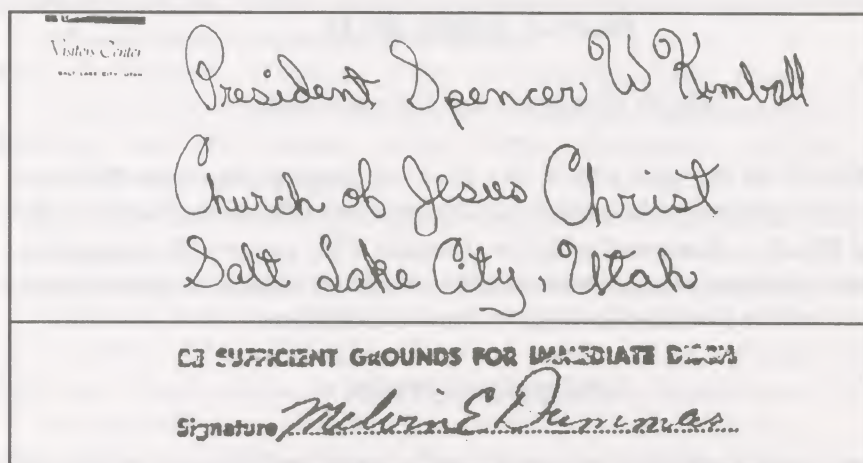 Visitors Center
SALT LAKE CITY, UTAH
President Spencer W Kimball
Church of Jesus Christ
Salt Lake City, Utah
BE SUFFICIENT GROUNDS FOR IMMEDIATE
Signature Melvin E Dummas